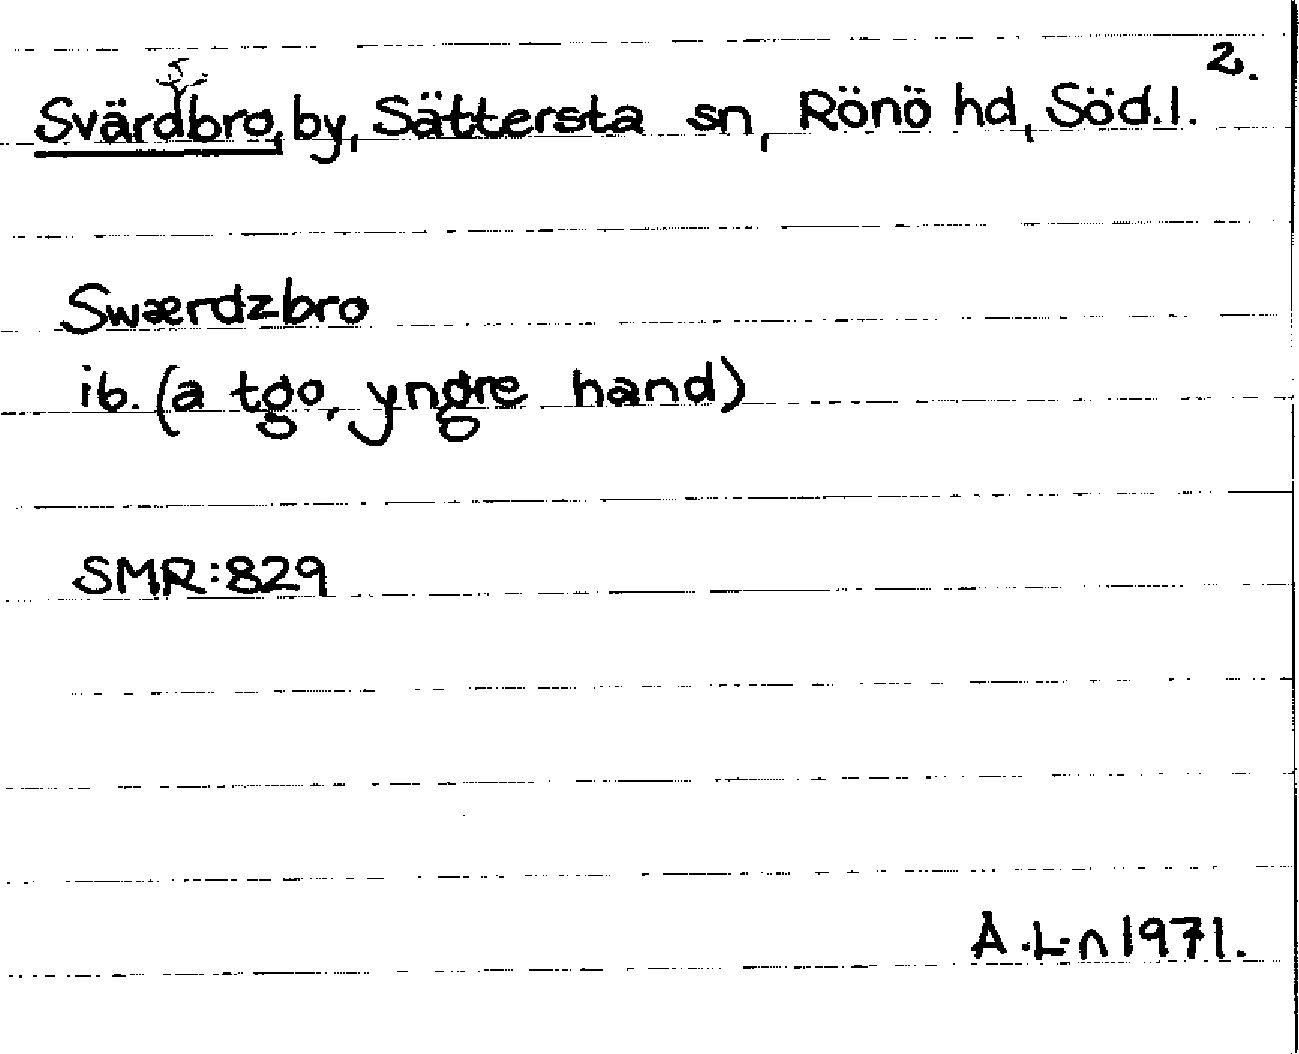 2.
Svärdsbro, by, Sättersta sn, Rönö hd, Söd.l.
Swærdzbro
ib. (a tgo, yngre hand)
SMR:829
A.L-n 1971.